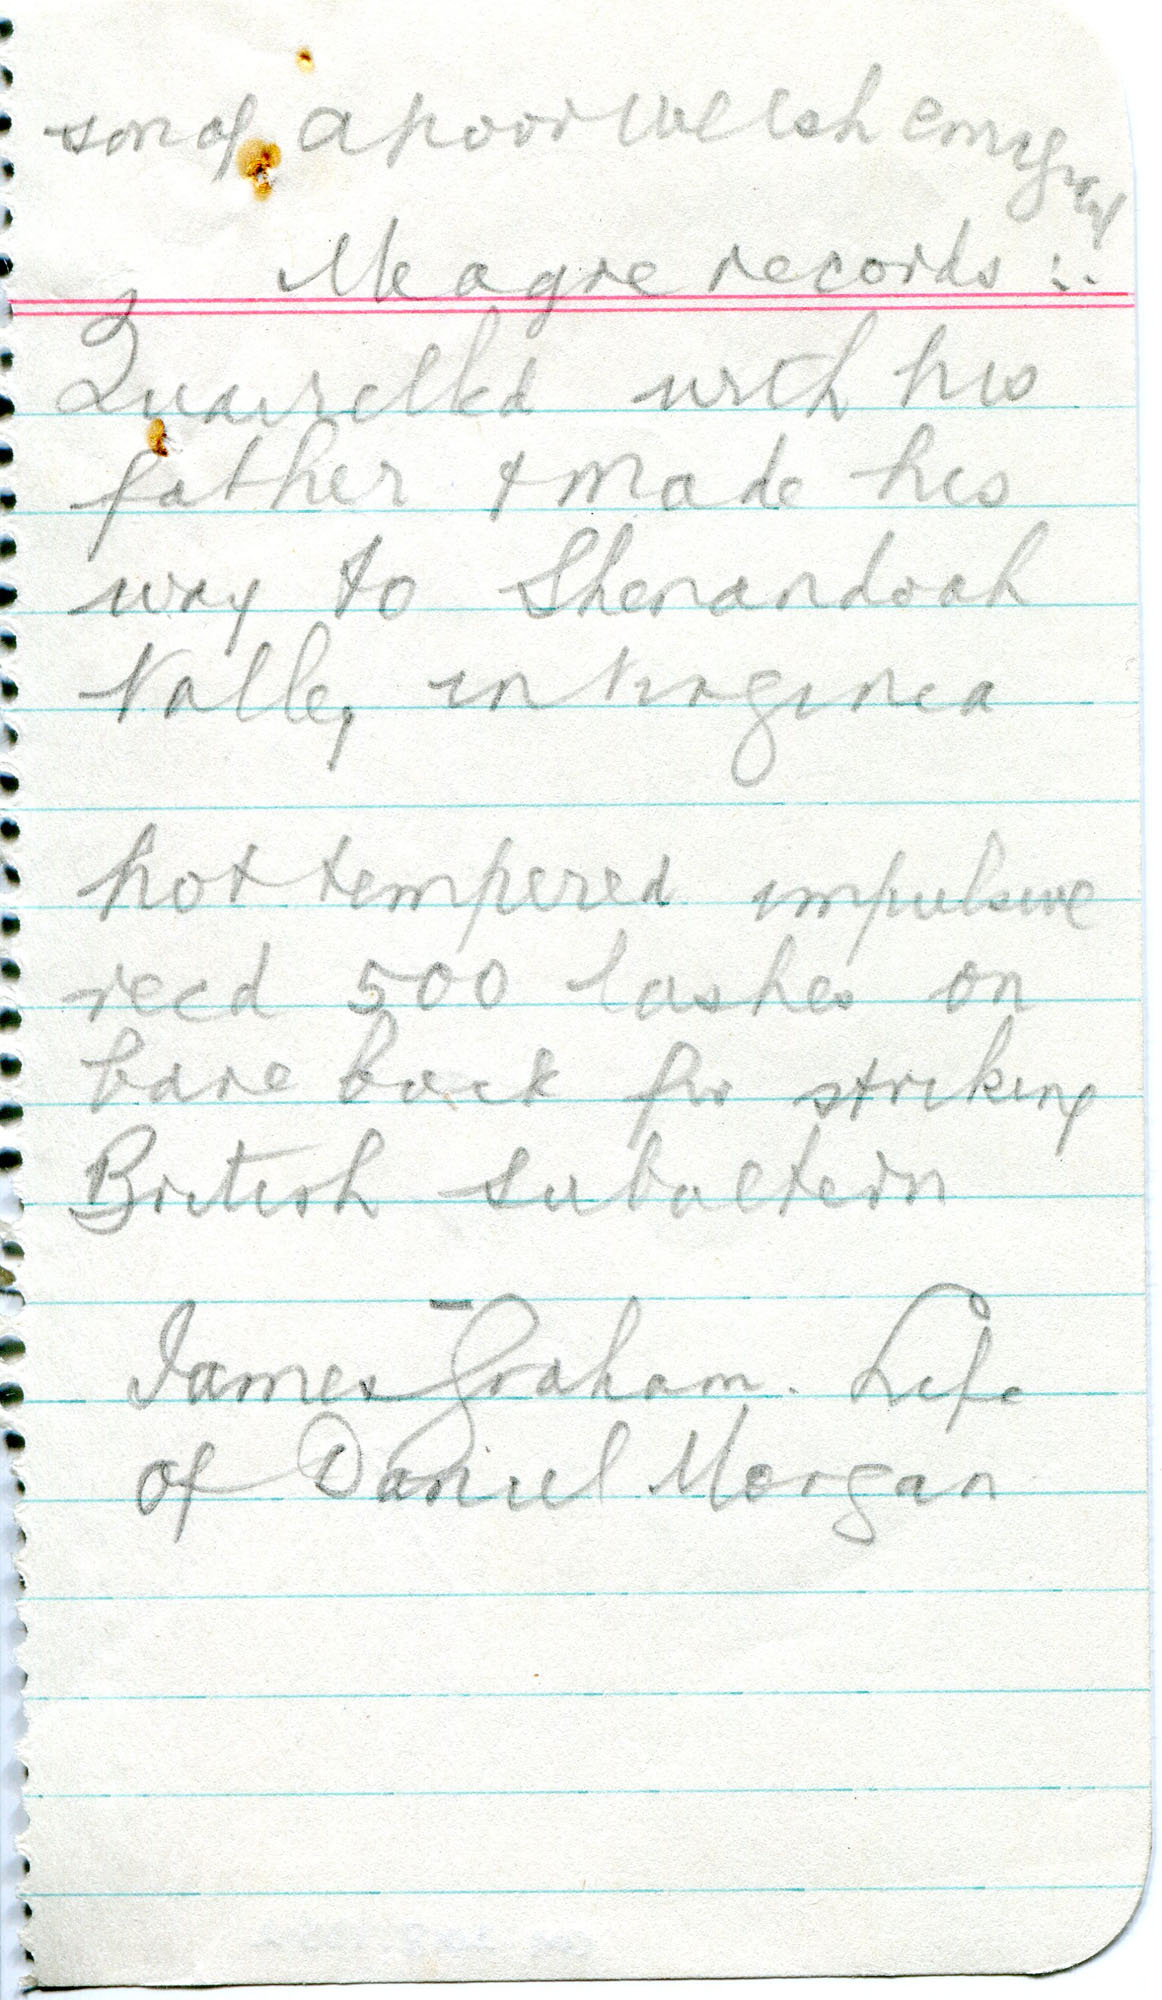 son of a poor Welsh emigrant
Meagre records :..
Quarrelled with his
father & made his
way to Shenandoah
Valley in Virginia
hot tempered impulsive
recd 500 lashes on
bare back for striking
British subaltern
James Graham. Life
of Daniel Morgan